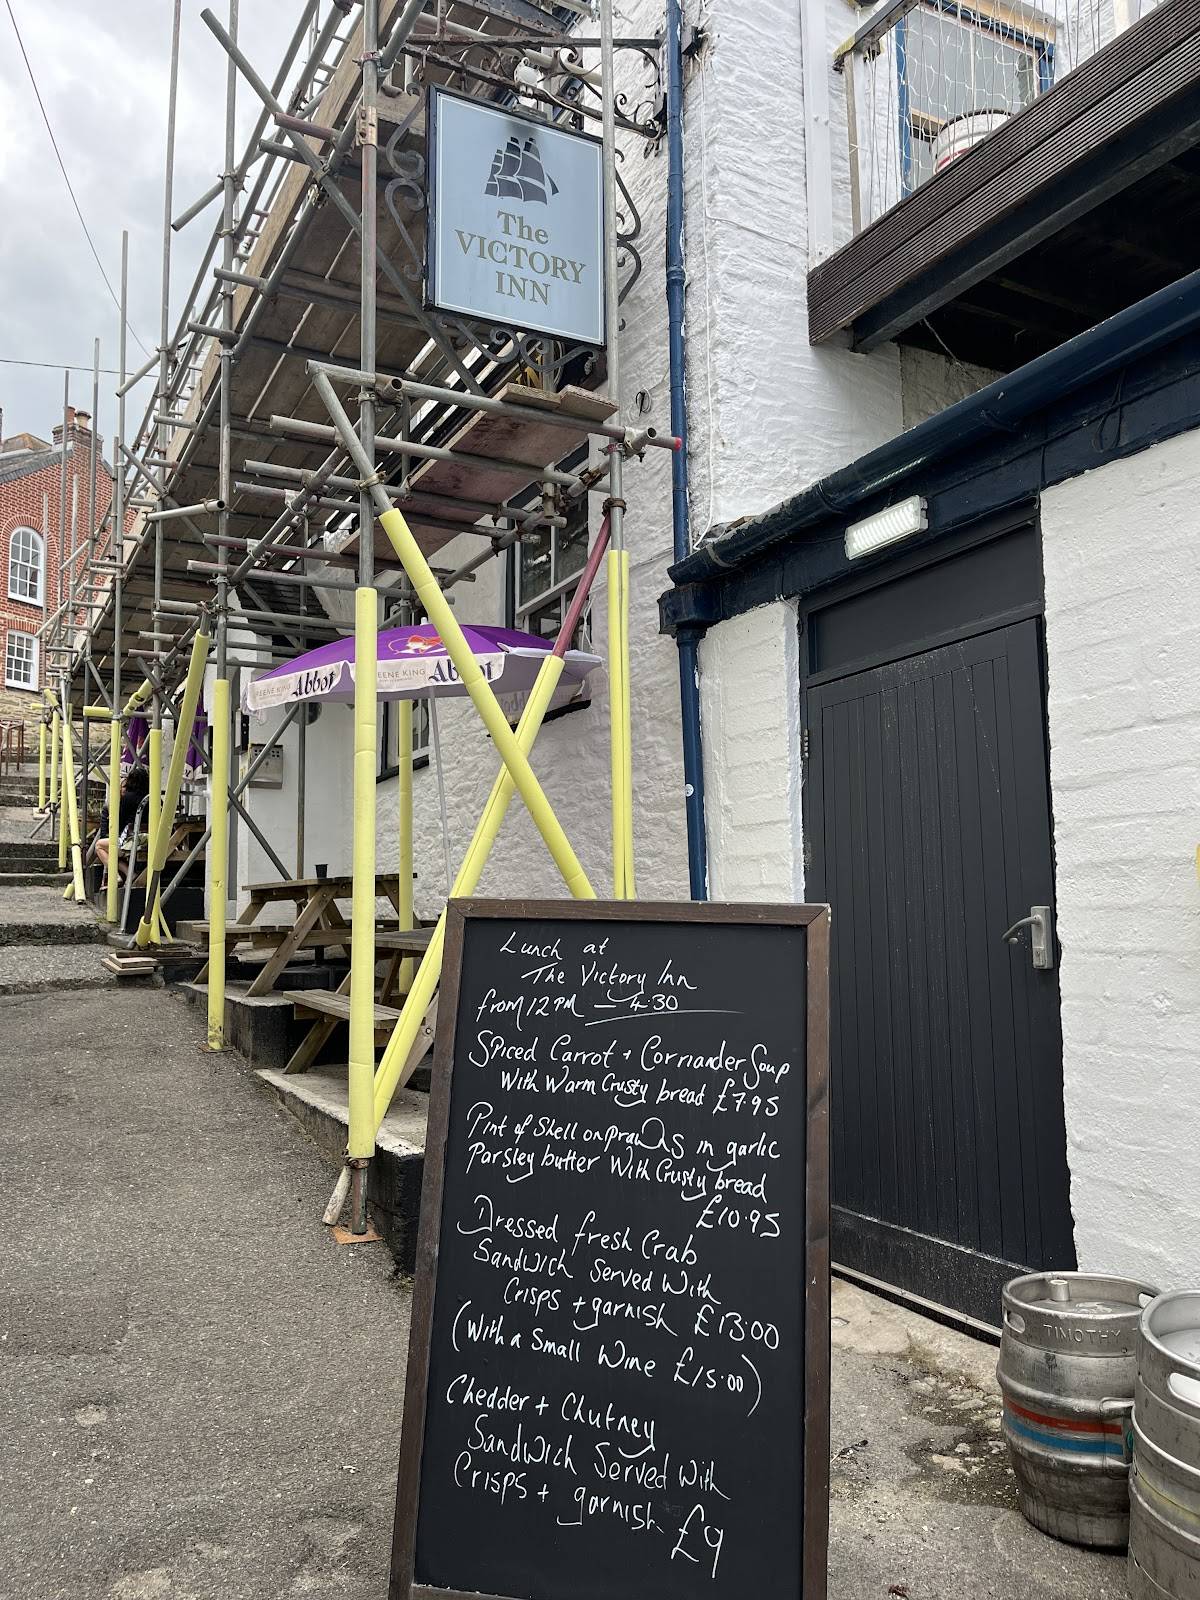 The
VICTORY
INN
GREENE KING
Abbot
GREENE KING
Abbot
Lunch at
The Victory Inn
from 12 PM — 4.30
Spiced Carrot + Corriander Soup
With Warm Crusty bread £7.95
Pint of Shell on prawns in garlic
Parsley butter With Crusty bread
£10.95
Dressed fresh Crab
Sandwich Served With
Crisps + garnish £13.00
(With a Small Wine £15.00)
Chedder + Chutney
Sandwich Served With
Crisps + garnish £9
TIMOTHY